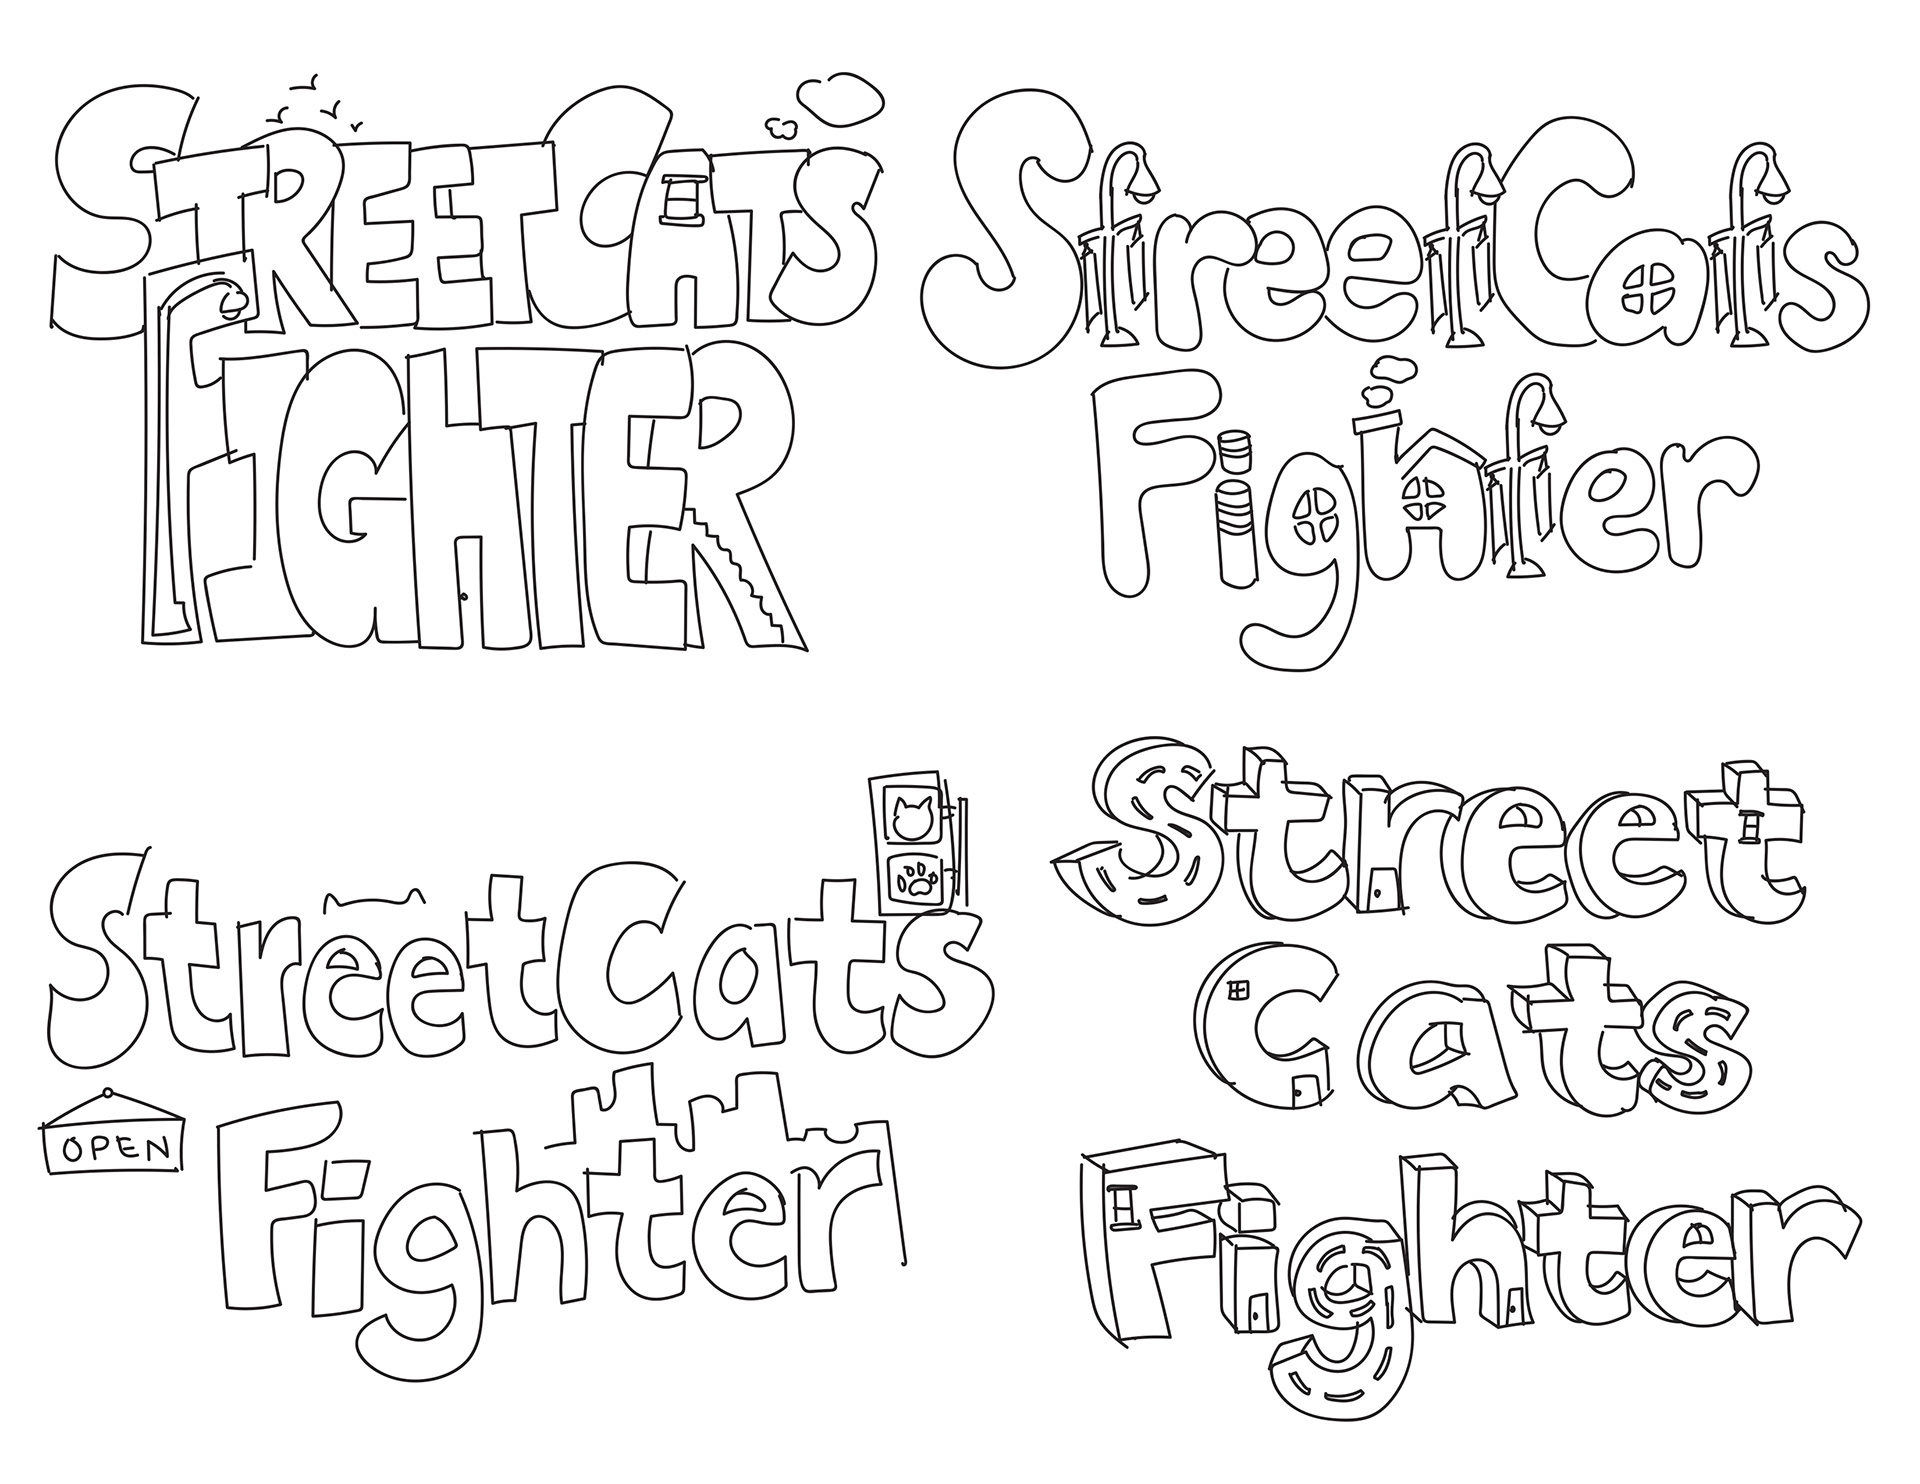 STREETCATS
FIGHTER
StreetCats
Fighter
StreetCats
OPEN
Fighter
Street
Cats
Fighter